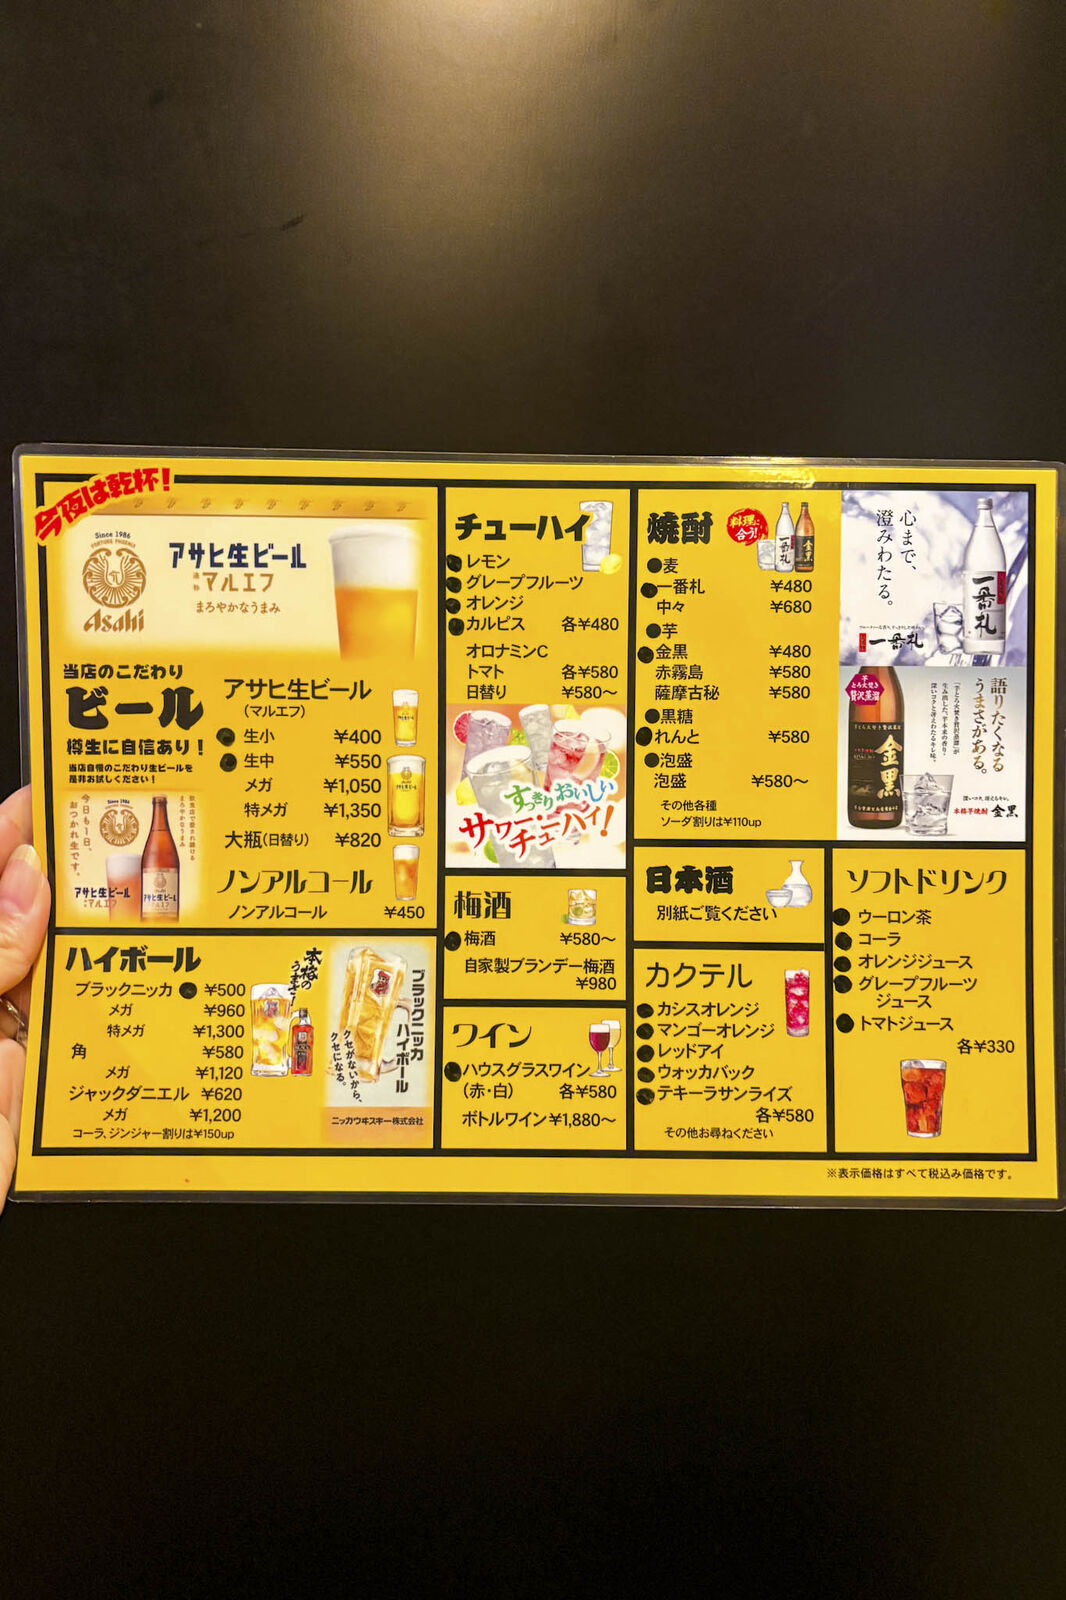 今夜は乾杯!
Since 1986
FORTUNE PHOENIX
Asahi
アサヒ生ビール
通称 マルエフ
まろやかなうまみ
当店のこだわり
ビール
樽生に自信あり!
当店自慢のこだわり生ビールを
是非お試しください!
今日も1日、
おつかれ生です。
アサヒ生ビール
マルエフ
アサヒ生ビール
(マルエフ)
●生小 ¥400
●生中 ¥550
メガ ¥1,050
特メガ ¥1,350
大瓶(日替り) ¥820
ノンアルコール
ノンアルコール ¥450
ハイボール
ブラックニッカ ● ¥500
メガ ¥960
特メガ ¥1,300
角 ¥580
メガ ¥1,120
ジャックダニエル ¥620
メガ ¥1,200
コーラ、ジンジャー割りは¥150up
本格の
うまさ!
ブラックニッカ
ハイボール
クセがないから、
クセになる。
ニッカウヰスキー株式会社
チューハイ
●レモン
●グレープフルーツ
●オレンジ
●カルピス 各¥480
オロナミンC
トマト 各¥580
日替り ¥580〜
すっきりおいしい
サワー・
チューハイ!
梅酒
●梅酒 ¥580〜
自家製ブランデー梅酒
¥980
ワイン
●ハウスグラスワイン
(赤・白) 各¥580
ボトルワイン¥1,880〜
焼酎
料理に
合う!
●麦
●一番札 ¥480
中々 ¥680
●芋
●金黒 ¥480
赤霧島 ¥580
薩摩古秘 ¥580
●黒糖
●れんと ¥580
●泡盛
泡盛 ¥580〜
その他各種
ソーダ割りは¥110up
心まで、
澄みわたる。
一番札
一番札
芋
とろ火焚き
贅沢蒸溜
金黒
語りたくなる
うまさがある。
深いコク、冴えるキレ。
本格芋焼酎 金黒
日本酒
別紙ご覧ください
カクテル
●カシスオレンジ
●マンゴーオレンジ
●レッドアイ
●ウォッカバック
●テキーラサンライズ
各¥580
その他お尋ねください
ソフトドリンク
●ウーロン茶
●コーラ
●オレンジジュース
●グレープフルーツ
ジュース
●トマトジュース
各¥330
※表示価格はすべて税込み価格です。